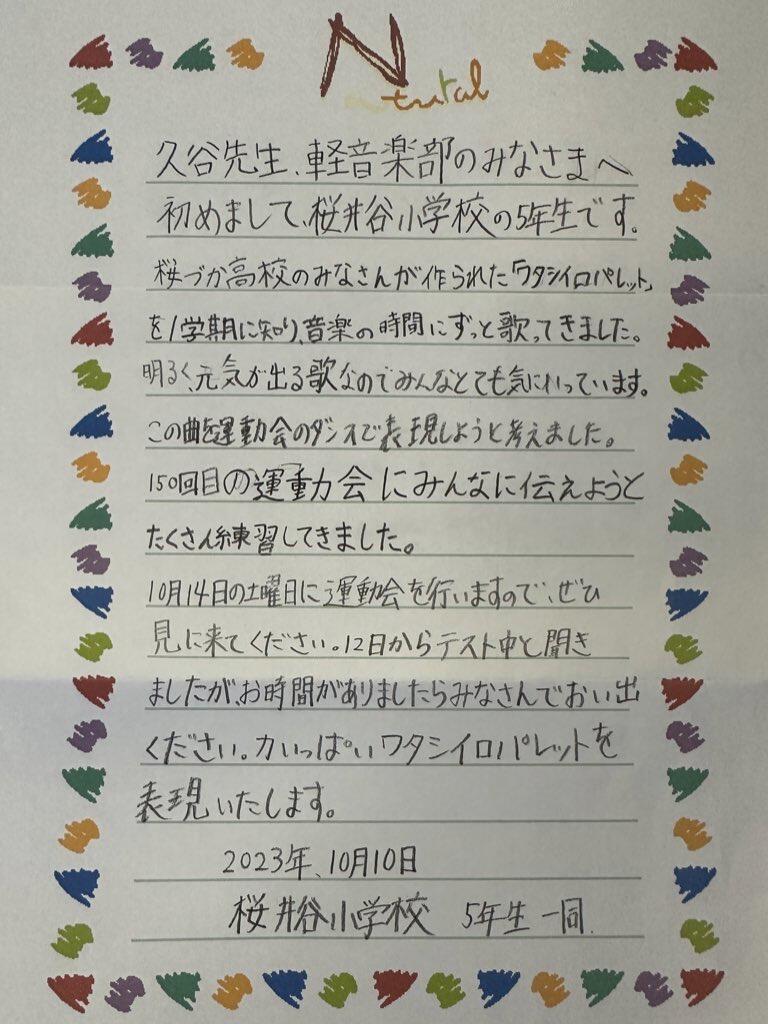 Natural
久谷先生、軽音楽部のみなさまへ
初めまして、桜井谷小学校の5年生です。
桜づか高校のみなさんが作られた「ワタシイロパレット」
を1学期に知り、音楽の時間にずっと歌ってきました。
明るく、元気が出る歌なのでみんなとても気にいっています。
この曲を運動会のダンスで表現しようと考えました。
150回目の運動会にみんなに伝えようと
たくさん練習してきました。
10月14日の土曜日に運動会を行いますので、ぜひ
見に来てください。12日からテスト中と聞き
ましたが、お時間がありましたらみなさんでおい出
ください。力いっぱいワタシイロパレットを
表現いたします。
2023年、10月10日
桜井谷小学校 5年生一同.